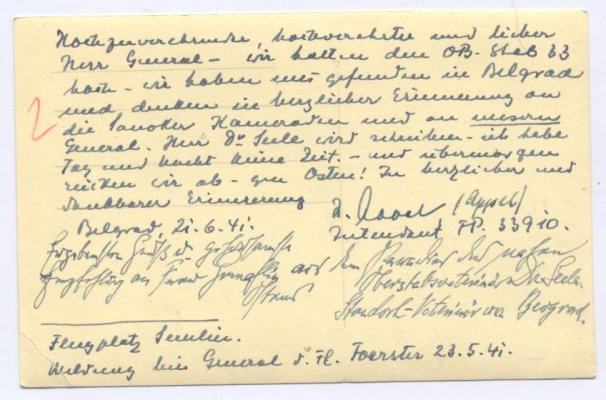 Hochzuverehrender, hochverehrter und lieber
Herr General – wir halten den OB-Stab 33
hoch – wir haben uns gefunden in Belgrad
und denken in herzlicher Erinnerung an
die Sanoker Kameraden und an unseren
General. Herr Dr Seele wird schreiben – ich habe
Tag und Nacht keine Zeit. – und übermorgen
rücken wir ab – gen Osten! In herzlicher und
dankbarer Erinnerung
Belgrad, 21.6.41.
(Appel)
Intendant FP. 33910.
Ergebensten Gruß u. gehorsamste
Empfehlung an Frau Gemahlin aus dem Paradies des nahen
Ostens
Oberstabsveterinär Dr. Seele
Standort-Veterinär
Beograd.
Flugplatz Semlin.
Meldung beim General d. Fl. Foerster 23.5.41.
2